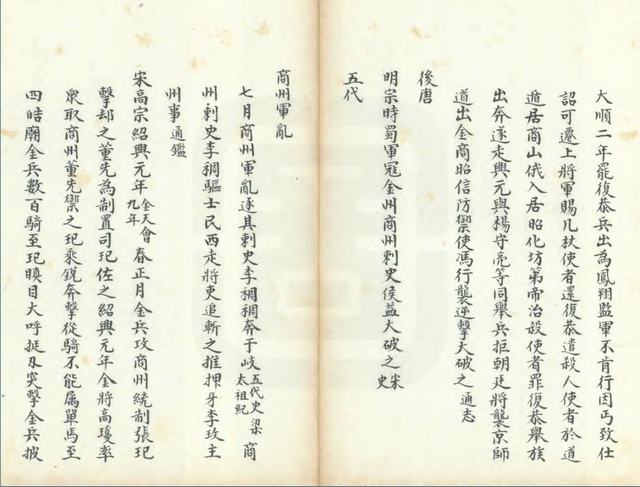 大順二年罷復恭兵出為鳳翔監軍不肯行因丐致仕
詔可遷上將軍賜几杖使者還復恭遣殺人使者於道
遁居商山俄入居昭化坊第帝治殺使者罪復恭舉族
出奔遂走興元與楊守亮等同舉兵拒朝廷將襲京師
道出金商昭信防禦使馮行襲逆擊大破之 通志
後唐
明宗時蜀軍寇金州商州刺史侯益大破之 宋史
五代
商州軍亂
七月商州軍亂逐其刺史李稠稠奔于岐 五代史梁太祖紀 商
州刺史李稠驅士民西走將吏追斬之推押牙李玫主
州事 通鑑
宋高宗紹興元年 金天會九年 春正月金兵攻商州統制張玘
擊却之董先為制置司玘佐之紹興元年金將高瓊率
眾取商州董先禦之玘乘銳奔擊從騎不能属單馬至
四皓廟金兵數百騎至玘瞋目大呼挺刄突擊金兵披